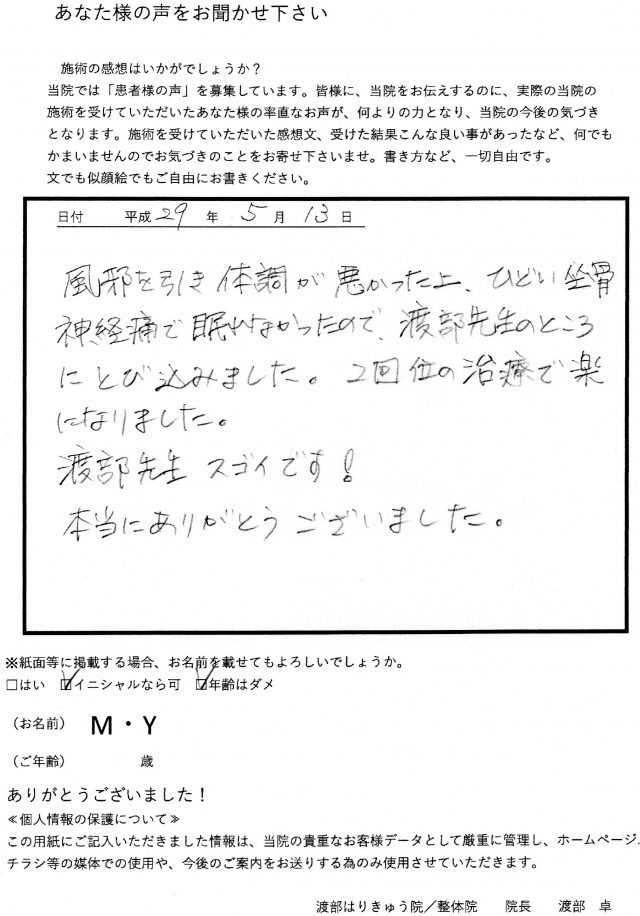 あなた様の声をお聞かせ下さい
施術の感想はいかがでしょうか？
当院では「患者様の声」を募集しています。皆様に、当院をお伝えするのに、実際の当院の
施術を受けていただいたあなた様の率直なお声が、何よりの力となり、当院の今後の気づき
となります。施術を受けていただいた感想文、受けた結果こんな良い事があったなど、何でも
かまいませんのでお気づきのことをお寄せ下さいませ。書き方など、一切自由です。
文でも似顔絵でもご自由にお書きください。
日付 平成 29 年 5 月 13 日
風邪を引き体調が悪かった上、ひどい坐骨
神経痛で眠れなかったので、渡部先生のところ
にとび込みました。2回位の治療で楽
になりました。
渡部先生 スゴイです！
本当にありがとうございました。
※紙面等に掲載する場合、お名前を載せてもよろしいでしょうか。
□はい ☑イニシャルなら可 ☑年齢はダメ
（お名前） M・Y
（ご年齢） 歳
ありがとうございました！
≪個人情報の保護について≫
この用紙にご記入いただきました情報は、当院の貴重なお客様データとして厳重に管理し、ホームページ、
チラシ等の媒体での使用や、今後のご案内をお送りする為のみ使用させていただきます。
渡部はりきゅう院／整体院 院長 渡部 卓